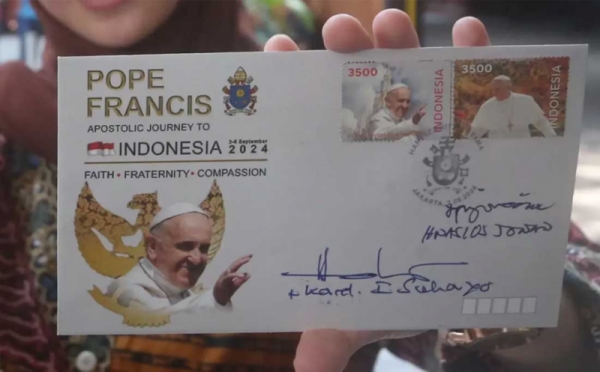 POPE
FRANCIS
APOSTOLIC JOURNEY TO
INDONESIA 3-6 September 2024
FAITH • FRATERNITY • COMPASSION
3500
INDONESIA
3500
INDONESIA
JAKARTA
+ Kard. I Suharyo